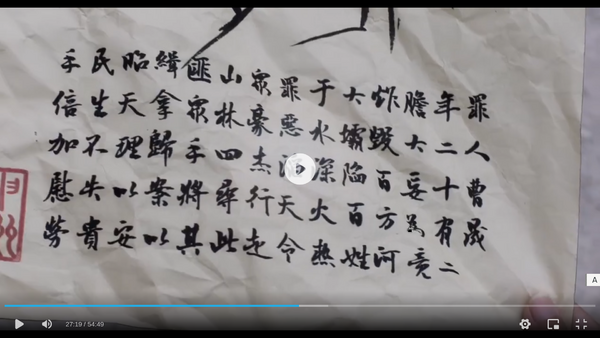 罪人曹晟
年二十有二
膽大妄為竟
炸毀百方河
大壩陷百姓
于水深火熱
罪惡滔天令
眾豪杰行走
山林四尋此
匪眾手將其
緝拿歸案以
昭天理以安
民生不失貴
手信加慰勞
A
27:19 / 54:49